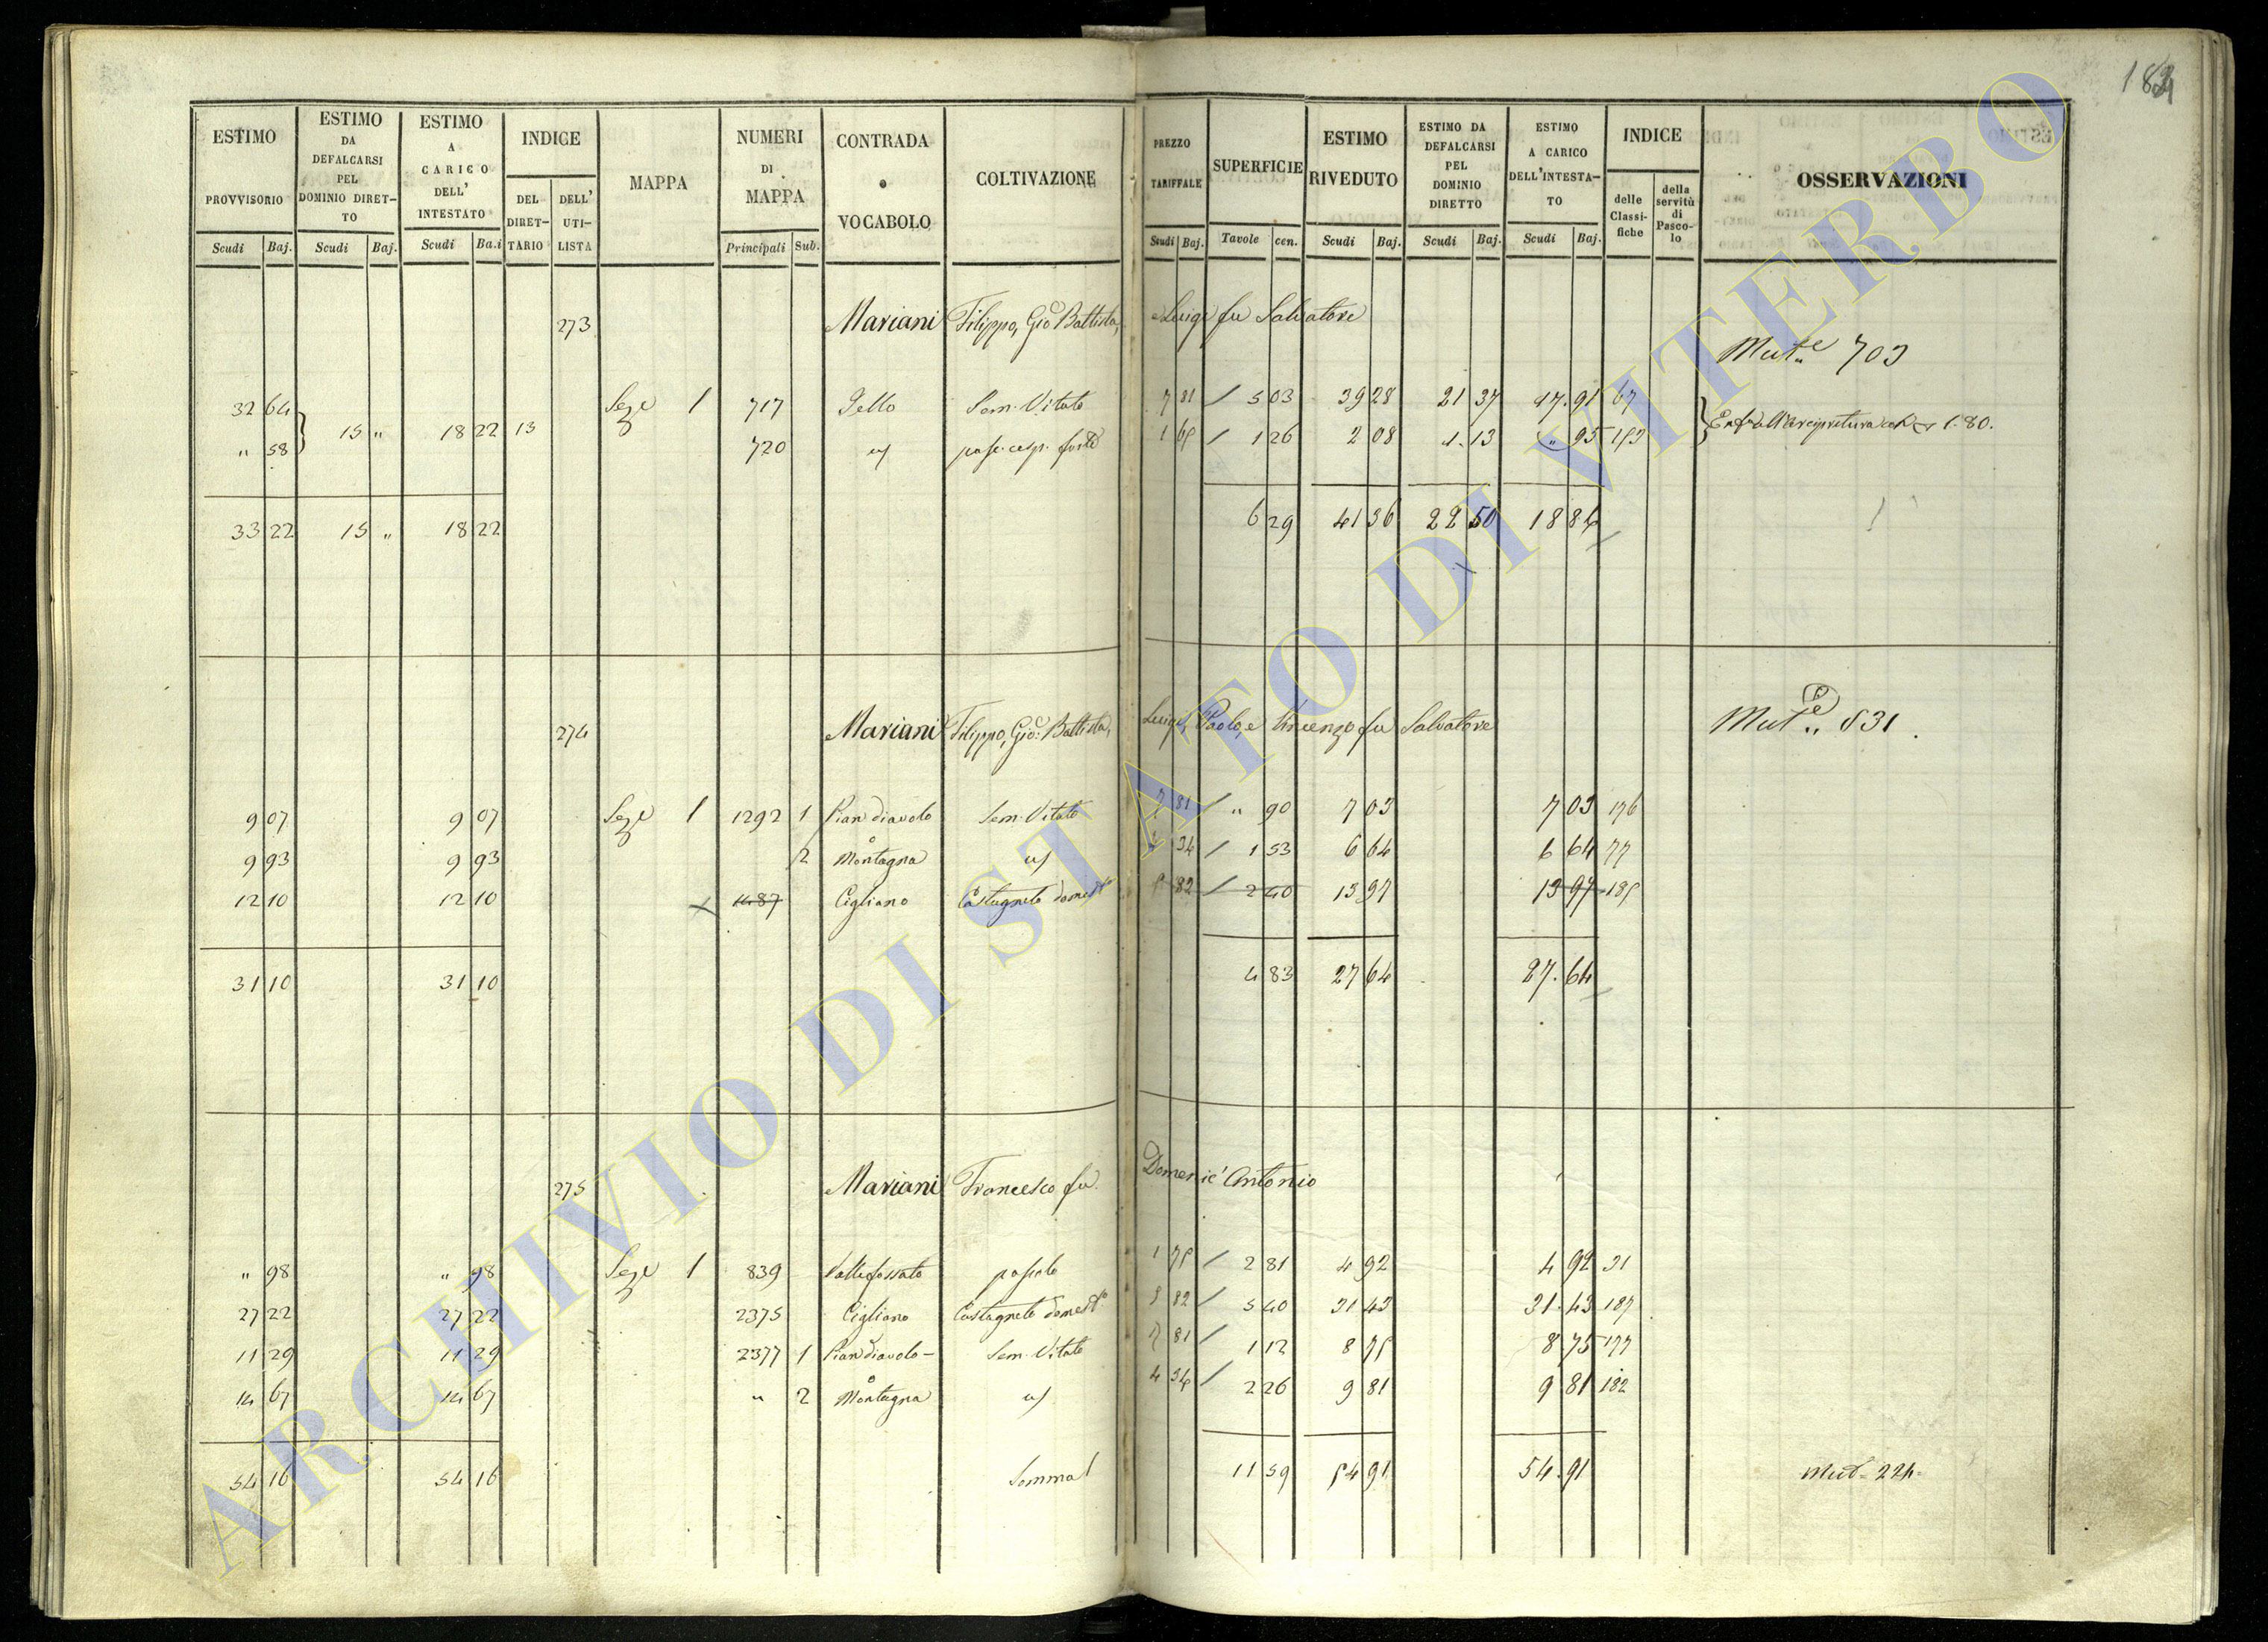 184
ESTIMO PROVVISORIO Scudi Baj.
ESTIMO DA DEFALCARSI PEL DOMINIO DIRETTO Scudi Baj.
ESTIMO A CARICO DELL' INTESTATO Scudi Ba.i
INDICE DEL DIRETTARIO DELL' UTILISTA
MAPPA
NUMERI DI MAPPA Principali Sub.
CONTRADA o VOCABOLO
COLTIVAZIONE
PREZZO TARIFFALE Scudi Baj.
SUPERFICIE Tavole cen.
ESTIMO RIVEDUTO Scudi Baj.
ESTIMO DA DEFALCARSI PEL DOMINIO DIRETTO Scudi Baj.
ESTIMO A CARICO DELL'INTESTATO Scudi Baj.
INDICE delle Classifiche della servitù di Pascolo
OSSERVAZIONI
273 Mariani Filippo, Gio Battista, e Luigi fu Salvatore
Mut.e 703
32 64 Seze 1 717 Sem. Vitato 7 81 / 5 03 39 28 21 37 17. 91 67
15 " 18 22 13
" 58 720 pasc. cesp. forte 1 65 / 1 26 2 08 1. 13 " 95 153
1.80.
33 22 15 " 18 22 6 29 41 36 22 50 18 86
274 Mariani Filippo, Gio: Battista, Luigi, Paolo, e Vincenzo fu Salvatore Mut.e 831
9 07 9 07 Seze 1 1292 1 Pian diavolo Sem. Vitato 7 81 / " 90 7 03 7 03 176
9 93 9 93 2 Montagna 4 34 / 1 53 6 64 6 64 77
12 10 12 10 1487 Cigliano Castagneto domest.o 5 82 / 2 40 13 97 13 97 185
31 10 31 10 4 83 27 64 27. 64
275 Mariani Francesco fu Domenic' Antonio
" 98 " 98 Seze 1 839 Vallefossato pascolo 1 75 / 2 81 4 92 4 92 31
27 22 27 22 2375 Cigliano Castagneto domest.o 5 82 / 5 40 31 43 31. 43 187
11 29 11 29 2377 1 Pian diavolo Sem. Vitato 7 81 / 1 12 8 75 8 75 177
14 67 14 67 " 2 Montagna 4 34 / 2 26 9 81 9 81 182
54 16 54 16 Somma 11 59 54 91 54. 91 Mut= 224=
ARCHIVIO DI STATO DI VITERBO